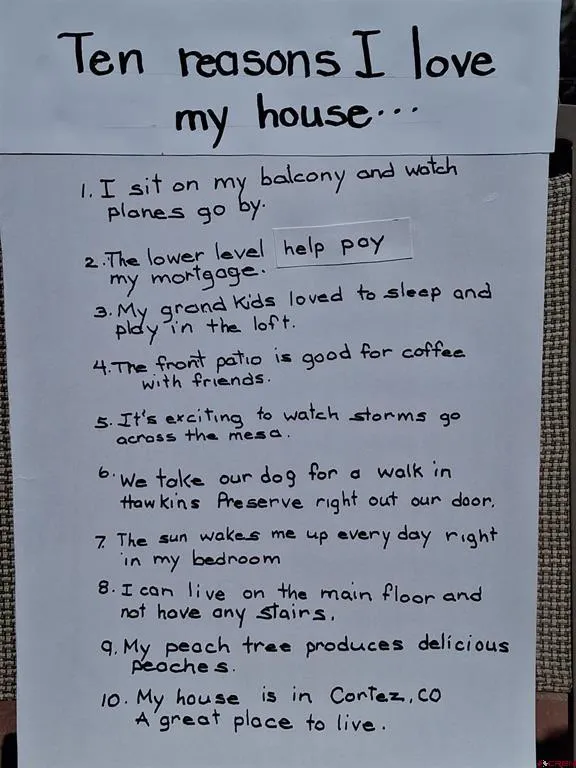 Ten reasons I love
my house...
1. I sit on my balcony and watch
planes go by.
2. The lower level help pay
my mortgage.
3. My grand kids loved to sleep and
play in the loft.
4. The front patio is good for coffee
with friends.
5. It's exciting to watch storms go
across the mesa.
6. We take our dog for a walk in
Hawkins Preserve right out our door.
7. The sun wakes me up every day right
in my bedroom
8. I can live on the main floor and
not have any stairs.
9. My peach tree produces delicious
peaches.
10. My house is in Cortez, CO
A great place to live.